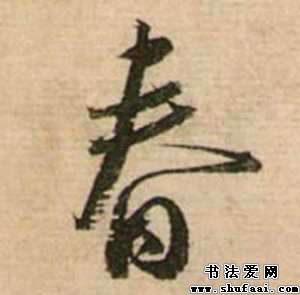 春
书法爱网
www.shufaai.com